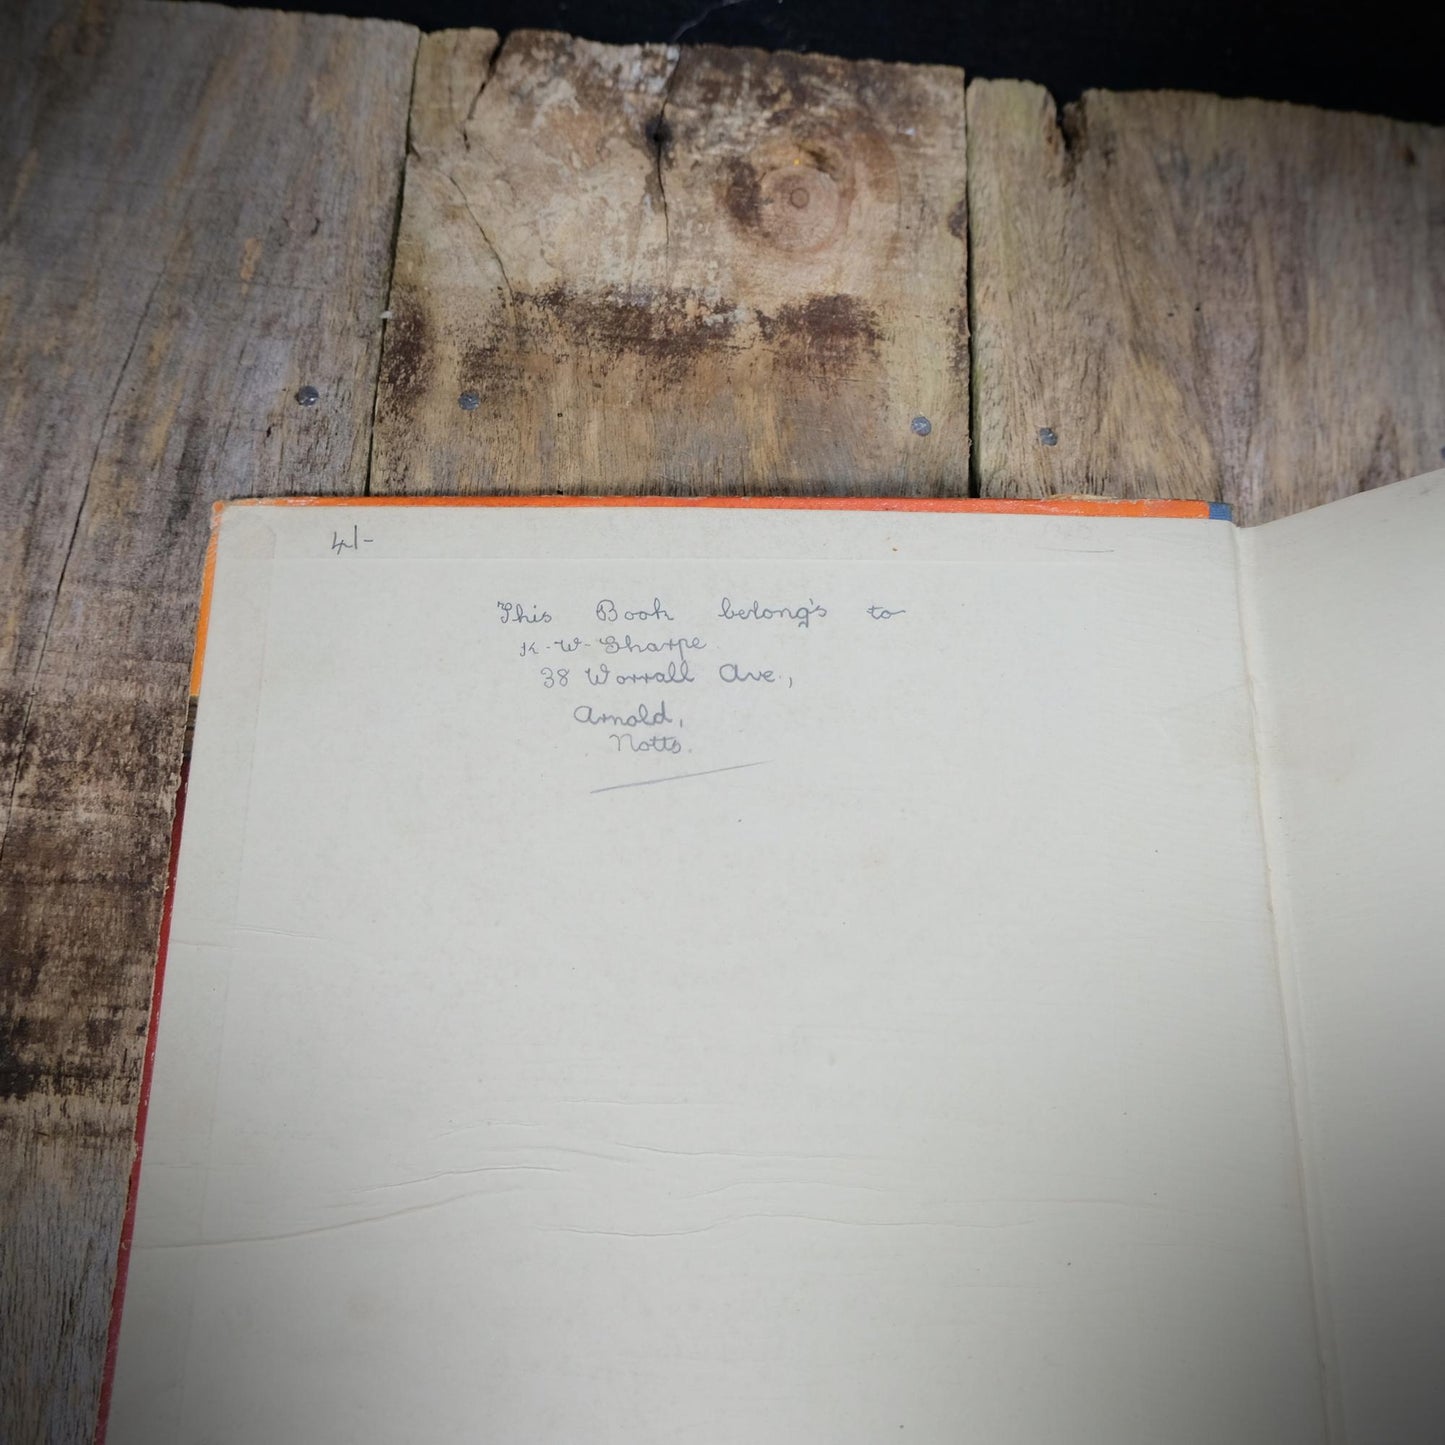 4/-
This Book belong's to
K. W. Sharpe
38 Worrall Ave.,
Arnold,
Notts.